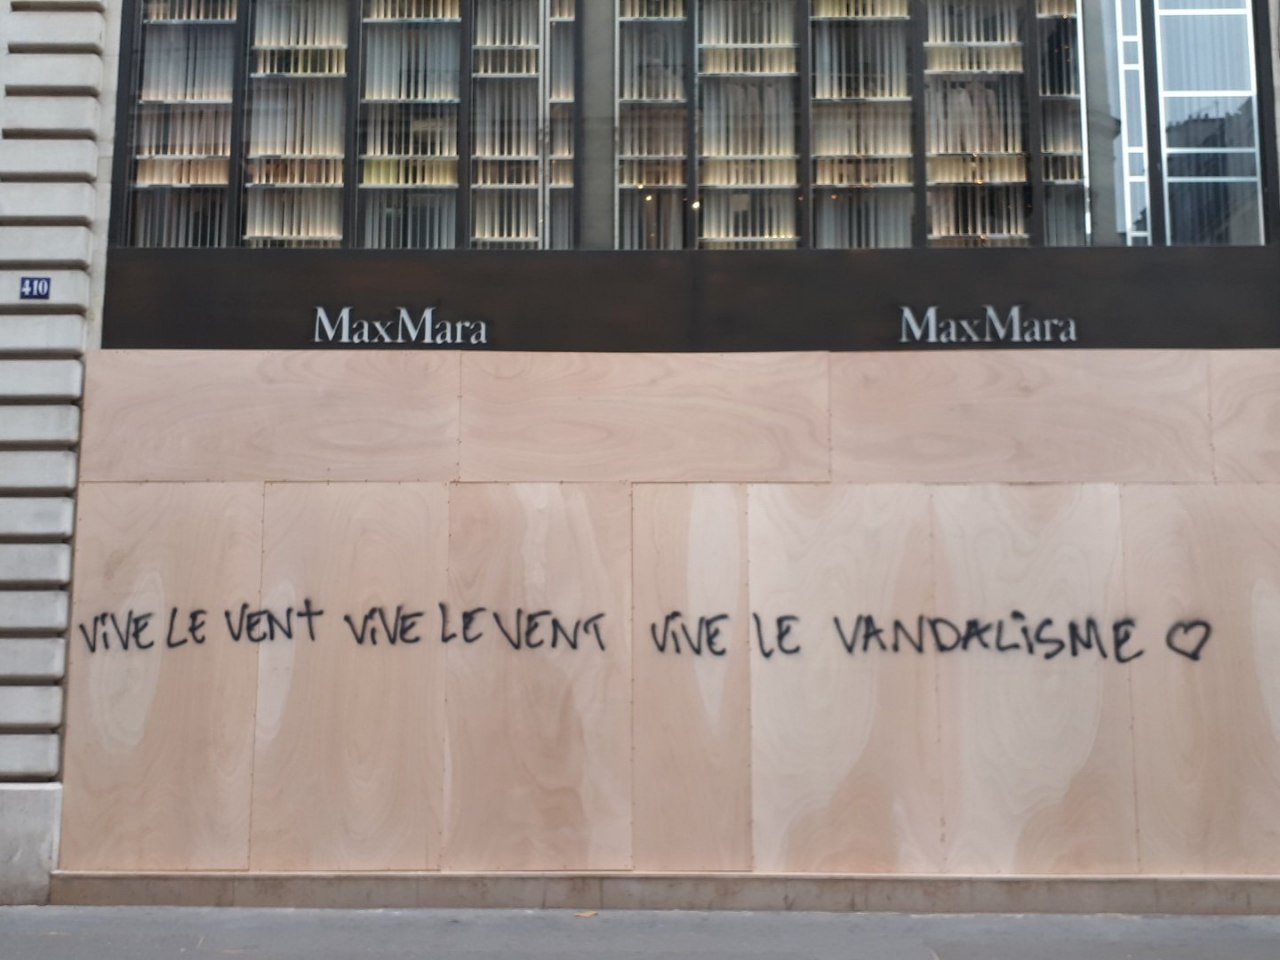 410
MaxMara MaxMara
ViVE LE VENT ViVE LE VENT ViVE LE VANDALiSME ♡